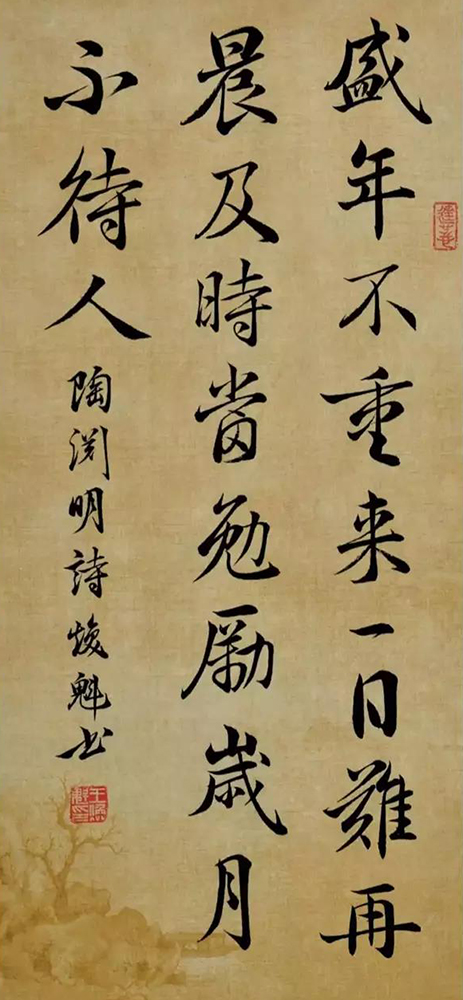 盛年不重来一日難再
晨及時當勉勵歲月
不待人
陶渊明詩焕魁书